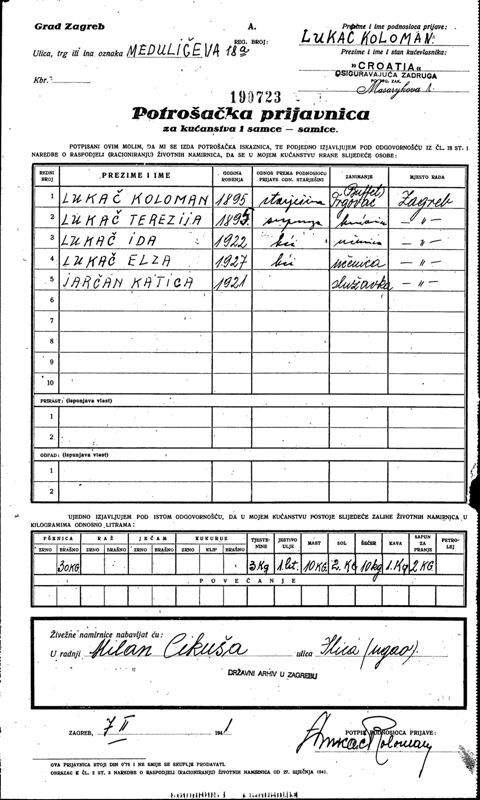 Grad Zagreb
A.
Prezime i ime podnosioca prijave:
LUKAČ KOLOMAN
Ulica, trg ili ina oznaka MEDULIĆEVA 18a
REG. BROJ:
Prezime i ime i stan kućevlasnika:
»CROATIA«
OSIGURAVAJUĆA ZADRUGA
Masarykova 1.
Kbr.
190723
Potrošačka prijavnica
za kućanstva i samce – samice.
POTPISANI OVIM MOLIM, DA MI SE IZDA POTROŠAČKA ISKAZNICA, TE PODJEDNO IZJAVLJUJEM POD ODGOVORNOŠĆU IZ ČL. 18 ST. 1
NAREDBE O RASPODJELI (RACIONIRANJU) ŽIVOTNIH NAMIRNICA, DA SE U MOJEM KUĆANSTVU HRANE SLIJEDEĆE OSOBE:
REDNI BROJ PREZIME I IME GODINA ROĐENJA ODNOS PREMA PODNOSIOCU PRIJAVE ODN. STARJEŠINI ZANIMANJE MJESTO RADA
1 LUKAČ KOLOMAN 1895 starješina (Buffet) Trgovac Zagreb
2 LUKAČ TEREZIJA 1895 supruga kućanica — " —
3 LUKAČ IDA 1922 kći učenica — " —
4 LUKAČ ELZA 1927 kći učenica — " —
5 JARČAN KATICA 1921 služavka — " —
6
7
8
9
10
PRIRAST: (ispunjava vlast)
1
2
OTPAD: (ispunjava vlast)
1
2
UJEDNO IZJAVLJUJEM POD ISTOM ODGOVORNOŠĆU, DA U MOJEM KUĆANSTVU POSTOJE SLIJEDEĆE ZALIHE ŽIVOTNIH NAMIRNICA U
KILOGRAMIMA ODNOSNO LITRAMA:
PŠENICA RAŽ JEČAM KUKURUZ TJESTENINE JESTIVO ULJE MAST SOL ŠEĆER KAVA SAPUN ZA PRANJE PETROLEJ
ZRNO BRAŠNO ZRNO BRAŠNO ZRNO BRAŠNO ZRNO KLIP BRAŠNO
30KG. 3Kg 1 lit. 10KG. 2. KG 10kg 1. Kg 2 KG
POVEĆANJE
Živežne namirnice nabavljat ću:
U radnji Milan Cikuša ulica Ilica (ugao).
DRŽAVNI ARHIV U ZAGREBU
ZAGREB, 7 II 1941
POTPIS PODNOSIOCA PRIJAVE:
Lukač Koloman
OVA PRIJAVNICA STOJI DIN 0'75 I NE SMIJE SE SKUPLJE PRODAVATI.
OBRAZAC K ČL. 2 ST. 3 NAREDBE O RASPODJELI (RACIONIRANJU) ŽIVOTNIH NAMIRNICA OD 27. SIJEČNJA 1941.